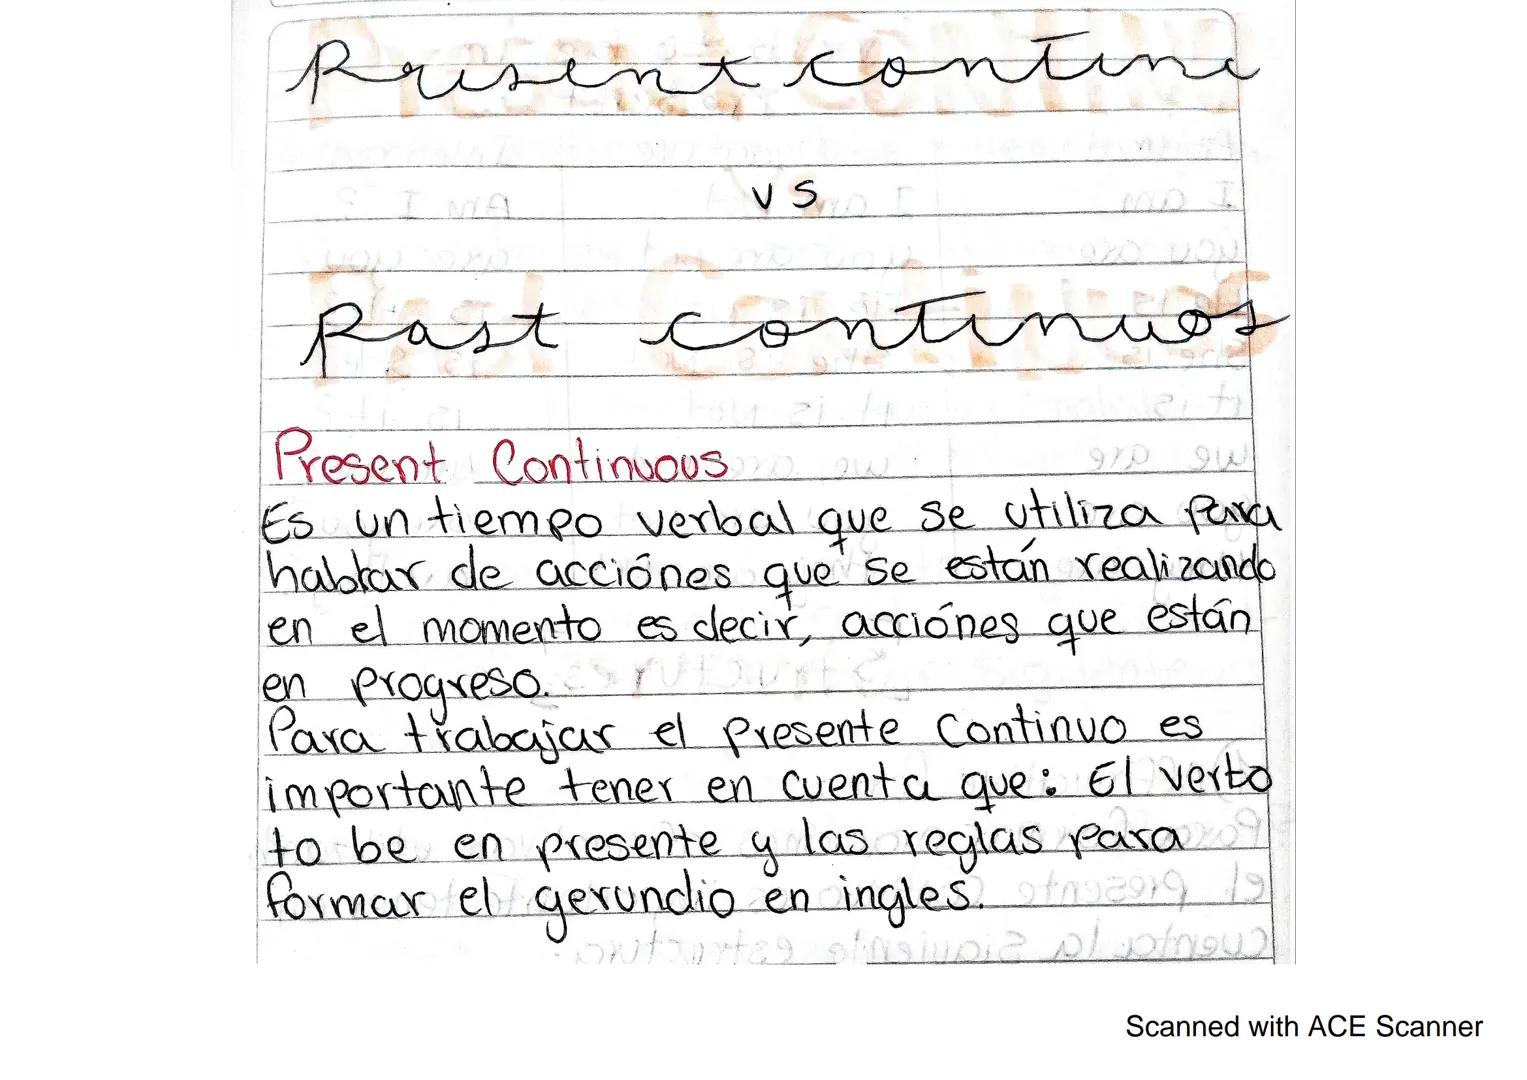 Present continu
vs
Past continuos
Present Continuous
Es un tiempo verbal que se utiliza para
hablar de acciónes que se están realizando
en el momento es decir, acciónes que están
en progreso.
Para trabajar el presente continuo es
importante tener en cuenta que: El verbo
to be en presente y las reglas para
formar el gerundio en ingles.
Scanned with ACE Scanner